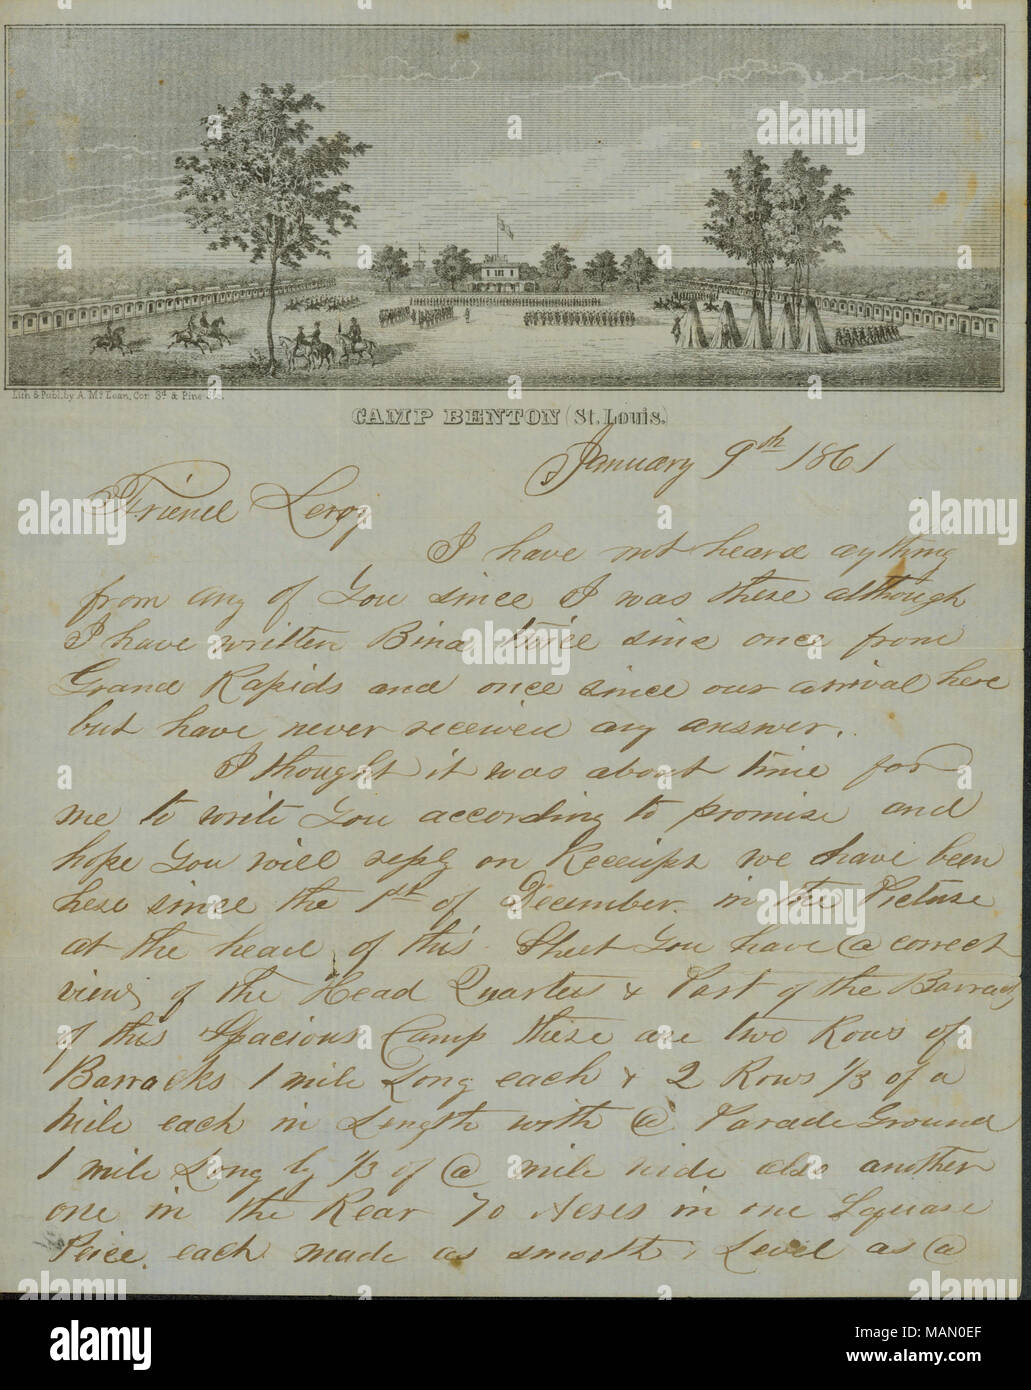 Lith & Publ. by A. McLean, Cor. 3d & Pine
CAMP BENTON (St. Louis.)
January 9th 1861
Friend Leroy
I have not heard aything
from any of You since I was there although
I have written Bina twice sinc once from
Grand Rapids and once since our arrival here
but have never received any answer.
I thought it was about time for
me to write You according to promise and
hope You will reply on Receipt we have been
here since the 1st of December. in the Picture
at the head of this Sheet You have @ correct
view of the Head Quarters & Part of the Barracks
of this Spacious Camp there are two Rows of
Barracks 1 mile Long each & 2 Rows 1/3 of a
Mile each in Length with @ Parade Ground
1 mile Long by 1/3 of @ mile wide also another
one in the Rear 70 Acres in one Square
Peice each made as smooth & Level as @
alamy
Image ID: MAN0EF
www.alamy.com